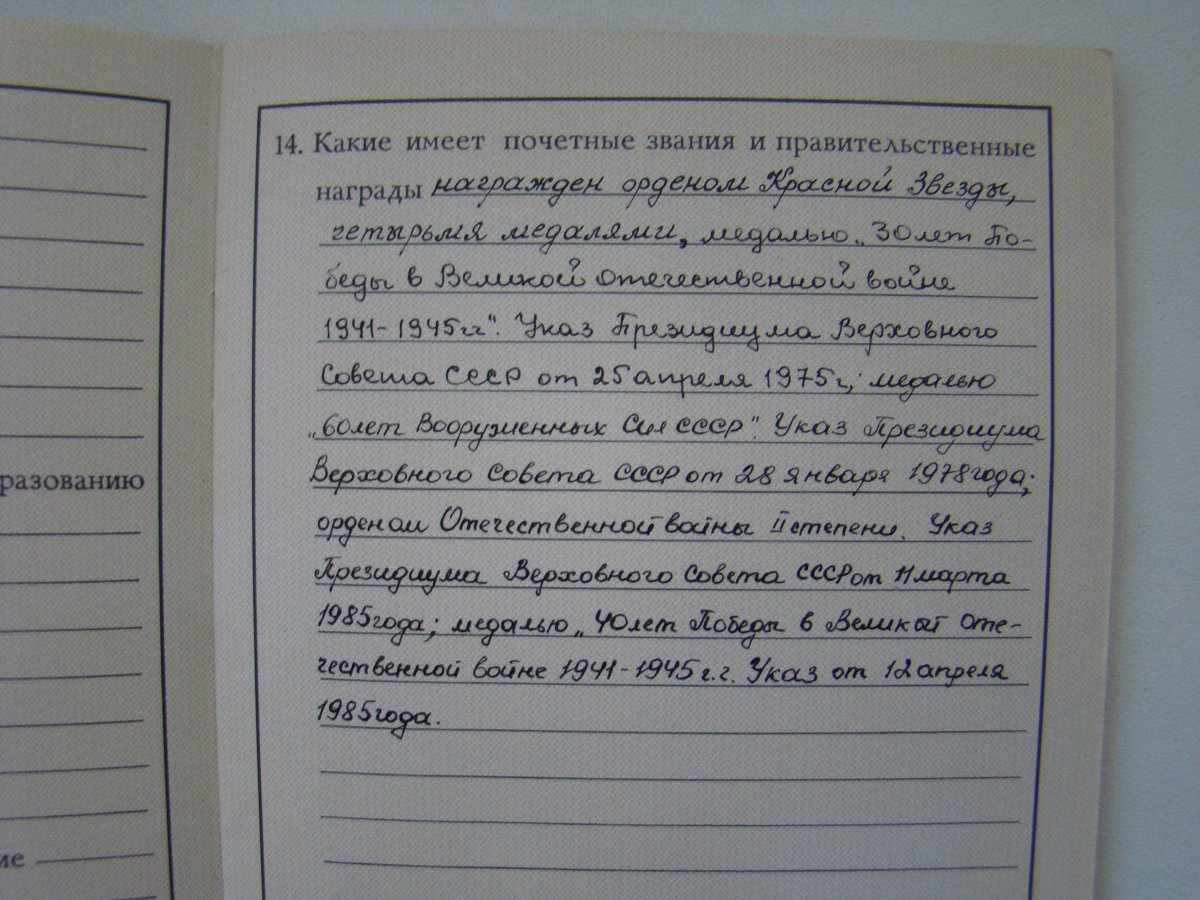 14. Какие имеет почетные звания и правительственные
награды награжден орденом Красной Звезды,
четырьмя медалями, медалью „30 лет По-
беды в Великой Отечественной войне
1941-1945 гг". Указ Президиума Верховного
Совета СССР от 25 апреля 1975 г.; медалью
„60 лет Вооруженных Сил СССР". Указ Президиума
Верховного Совета СССР от 28 января 1978 года;
орденом Отечественной войны II степени. Указ
Президиума Верховного Совета СССР от 11 марта
1985 года; медалью „40 лет Победы в Великой Оте-
чественной войне 1941-1945 г.г. Указ от 12 апреля
1985 года.
разованию
ие